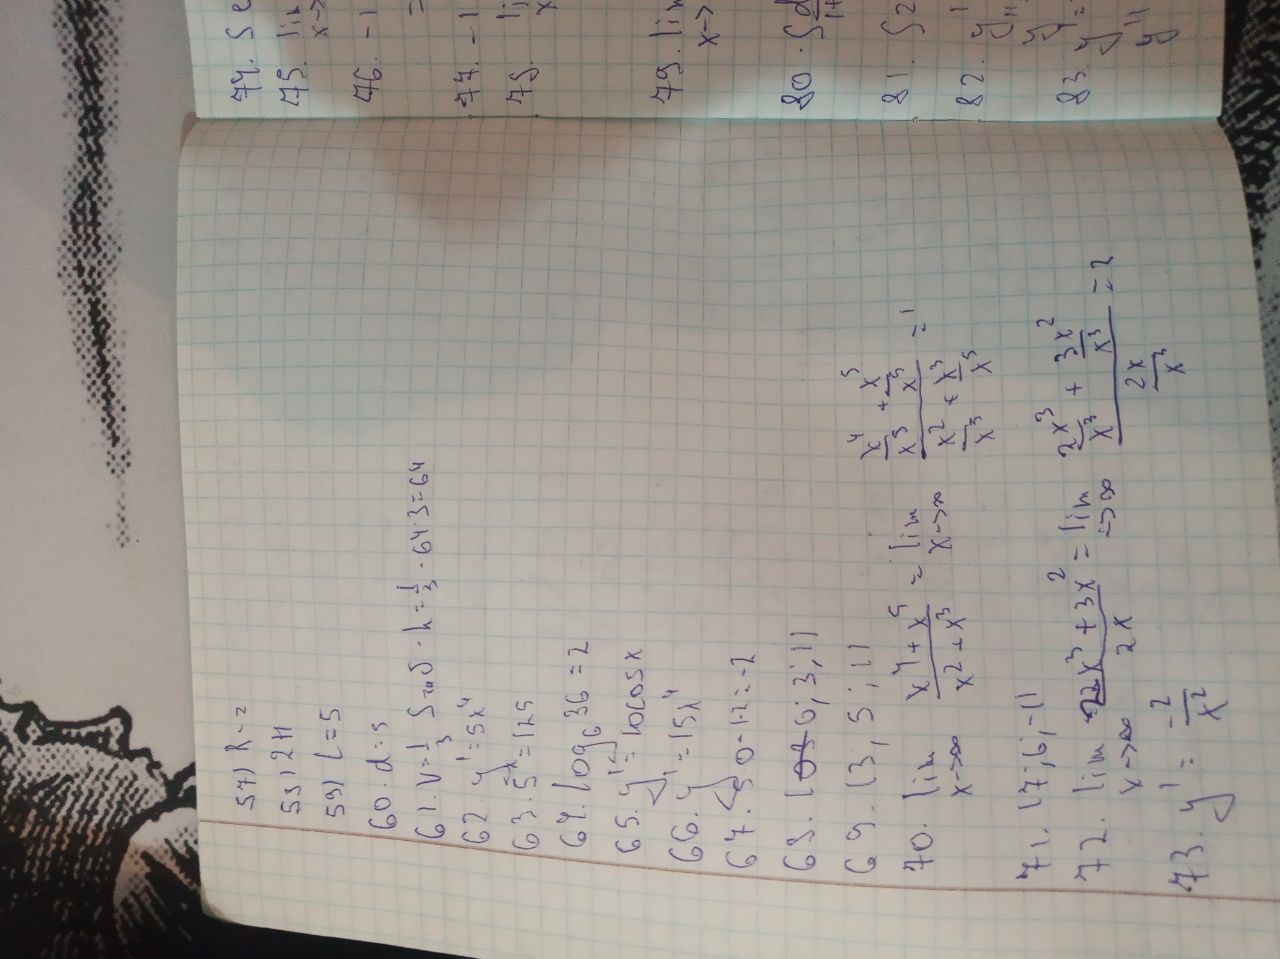 57) R-2
58) 2H
59) l=5
60. d=5
61. V=1/3 Sзаб · h = 1/3 · 64·3=64
62. y'=5x⁴
63. 5ˣ=125
64. log₆36=2
65. y'=10cosx
66. y'=15x⁴
67. 5·0-1·2=-2
68. (0; 3; 1)
69. (3, 5; 1)
70. lim x→∞ (x⁴+x⁵)/(x²+x³) = lim x→∞ (x⁴/x⁵ + x⁵/x⁵)/(x²/x⁵ + x³/x⁵) = 1
71. (7; 6; -1)
72. lim x→∞ (2x³+3x²)/2x = lim →∞ (2x³/x³ + 3x²/x³)/(2x/x³) = 2
73. y' = -2/x²
74. S
75. lim
x→
76. -1
=
77. -1
78.
x
79. lim
x→
80. S
81. S2
82. y'
y''
83. y' =
y''